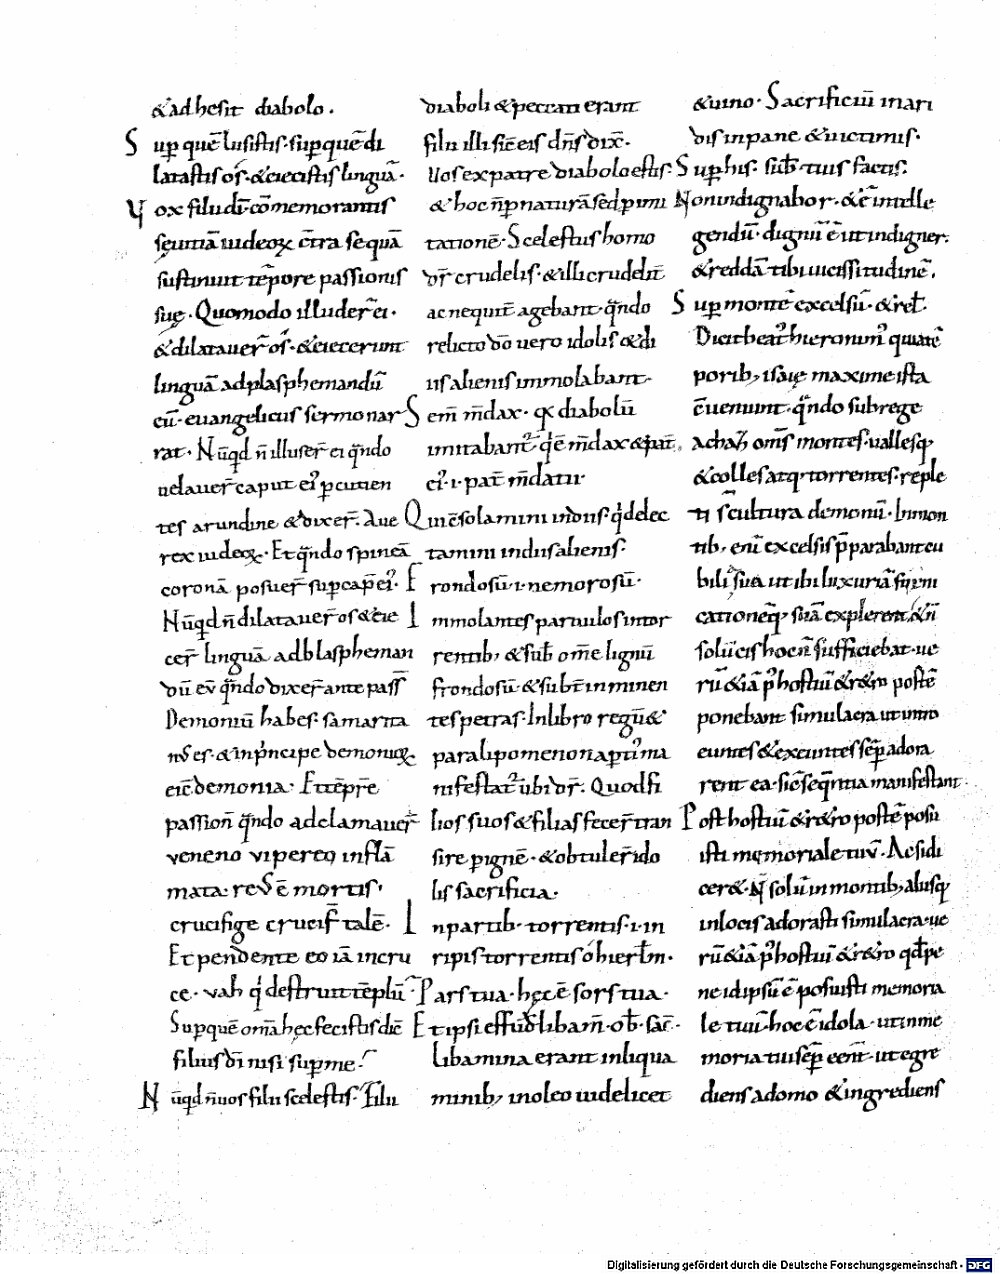 & adhesit diabolo.
Sup̄ quē lusistis. sup̄ quē di
latastis os̄. & eiecistis linguā.
Vox filii dī. cōmemorantis
sęuitiā iudeoꝝ c̄tra se quā
sustinuit tēpore passionis
suę. Quomodo illuder̄ ei.
& dilatauer̄ os̄. & eiecerunt
linguā ad plasphemandū
eū. euangelicus sermo nar
rat. Nūqd n̄ illuser̄ ei qn̄do
uelauer̄ caput ei᾽ percutien
tes arundine & dixer̄. Aue
rex iudeoꝝ. Et qn̄do spineā
coronā posuer̄ sup̄ cap̄ ei᾽.
Nūqd n̄ dilatauer̄ os & eie
cer̄ linguā ad blaspheman
dū eū qn̄do dixer̄ ante pass̄
Demoniū habes. samarita
nus es. & in p'ncipe demonioꝝ
eicī demonia. Et tēpr̄e
passion̄ qn̄do adclamauer̄
ueneno vipereo inflā
mata. reus ē mortis.
crucifige crucif̄ talē.
Et pendente eo iā in cru
ce. vah q' destruit tēplū.
Sup̄ quē om̄a hęc fecistis dic̄
filius dī nisi sup̄ me.
Nūqd n̄ uos filii scelestis. Filii
diaboli & peccati erant
filii illi sic̄ eis dn̄s dix̄.
Uos ex patre diabolo estis.
& hoc n̄ p̄ naturā sed p̄ imi
tationē. Scelestus homo
dr̄ crudelis. & illi crudelit̄
ac nequit̄ agebant. qn̄do
relicto dō uero idolis & di
is alienis immolabant.
Sem̄ m̄dax. qꝫ diabolū
imitabant᾽ q'ē m̄dax & pat̄
ei᾽. i. pat̄ m̄datii.
Qui c̄solamini in diis q' delec
tamini in diis alienis.
Frondosū. i. nemorosū.
Immolantes paruulos in tor
rentibꝫ & sub̄ om̄e lignū
frondosū. & subt̄ inminen
tes petras. In libro regū &
paralipomenon aptī ma
nifestat᾽ ubi dr̄. Quod fi
lios suos & filias fecer̄ tran
sire p̄ ignē. & obtuler̄ ido
lis sacrificia.
In partibꝫ torrentis. i. in
ripis torrentis ó hierl̄m.
Pars tua. hęc ē sors tua.
Et ipsi effud̄ libam̄. ob̄. sac̄.
Libamina erant in liqua
minibꝫ in oleo uidelicet
& uino. Sacrificiū in ari
dis in pane & uictimis.
Sup̄ his. sub̄ tuis factis.
Non indignabor. & ē intelle
gendū. dignū ē ut indigner.
& reddā tibi uicissitudinē.
Sup̄ montē excelsū. & rel̄.
Dicit beat᾽ hieronim᾽ quia tē
poribꝫ isaię maxime ista
c̄uenunt. qn̄do sub rege
achaz om̄s montes. uallesqꝫ
& colles atqꝫ torrentes. reple
ti s̄ culturā demonū. In mon
tibꝫ enī excelsis p̄parabant cu
bilia sua ut ibi luxuriā
cationēqꝫ suā explerent. & n̄
solū eis hoc n̄ sufficiebat. ue
rū & iā p᾽ hostiū & retro postē
ponebant simulacra ut intro
euntes & exeuntes sēp̄ adora
rent ea. sic̄ seq̄ntia manifestant.
Post hostiū & retro postē posu
isti memoriale tuū. Ac si di
cer&. N̄ solū in montibꝫ aliisqꝫ
in locis adorasti simulacra. ue
rū & iā p᾽ hostiū & retro qd̄ pe
ne id ipsū ē posuisti memoria
le tuū. hoc ē idola. ut in me
moria tui sēp̄ eēnt. ut egre
diens a domo & ingrediens
Digitalisierung gefördert durch die Deutsche Forschungsgemeinschaft - DFG